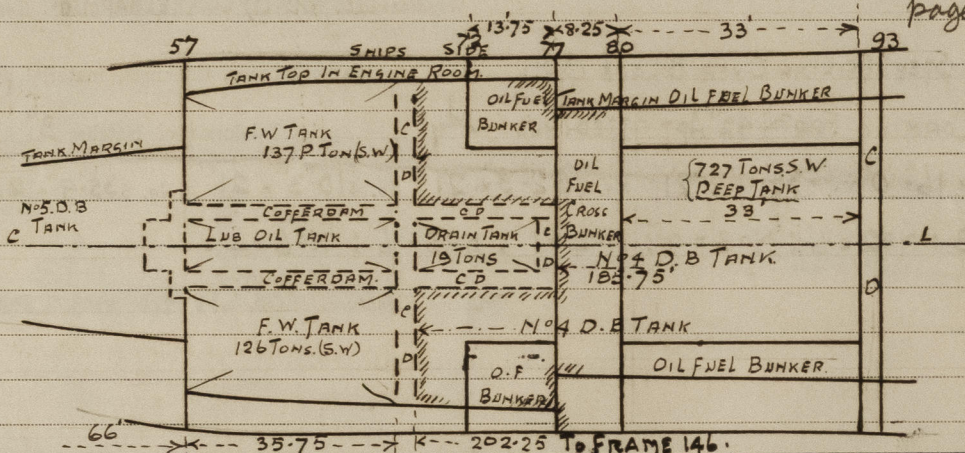 page
13·75 8·25 33'
57 77 80 93
SHIPS SIDE
TANK TOP IN ENGINE ROOM.
OIL FUEL
BUNKER
TANK MARGIN OIL FUEL BUNKER
F.W TANK
137 P. TON (S.W)
C
D
TANK MARGIN
OIL
FUEL
CROSS
BUNKER
727 TONS S.W.
DEEP TANK
33'
C
D
No 5. D.B
TANK
COFFERDAM
C D
LUB OIL TANK
DRAIN TANK
19 TONS
C
D
C L
COFFERDAM.
C D
No 4 D.B TANK.
185·75'
F.W. TANK
126 TONS.(S.W)
C
D
No 4 D.B TANK
O.F
BUNKER
OIL FUEL BUNKER.
66' 35·75 202·25 TO FRAME 146.